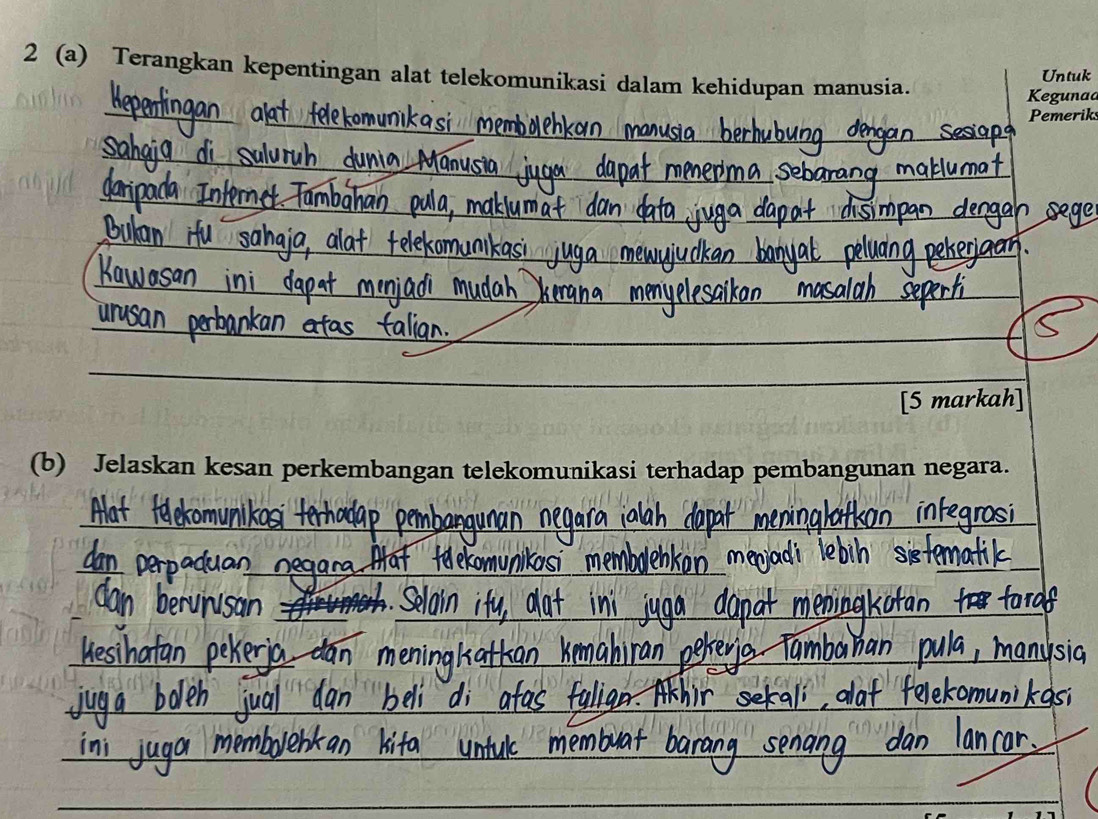 2 (a) Terangkan kepentingan alat telekomunikasi dalam kehidupan manusia.
Untuk
Kegunaa
Pemeriks
Kepentingan alat telekomunikasi membolehkan manusia berhubung dengan sesiapa
sahaja di suluruh dunia Manusia juga dapat menerima sebarang maklumat
daripada Internet. Tambahan pula, maklumat dan data juga dapat disimpan dengan sege
Bukan itu sahaja, alat telekomunikasi juga mewujudkan banyak peluang pekerjaan.
Kawasan ini dapat menjadi mudah kerana menyelesaikan masalah seperti
urusan perbankan atas talian.
5
[5 markah]
(b) Jelaskan kesan perkembangan telekomunikasi terhadap pembangunan negara.
Alat telekomunikasi terhadap pembangunan negara ialah dapat meninglatkan integrasi
dan perpaduan negara. Alat telekomunikasi membolehkan menjadi lebih sistematik
dan berurusan. Selain itu, alat ini juga dapat meningkatan taraf
kesihatan pekerja dan meningkatkan kemahiran pekerja. Tambahan pula, manusia
juga boleh jual dan beli di atas talian. Akhir sekali, alat telekomunikasi
ini juga membolehkan kita untuk membuat barang senang dan lancar.